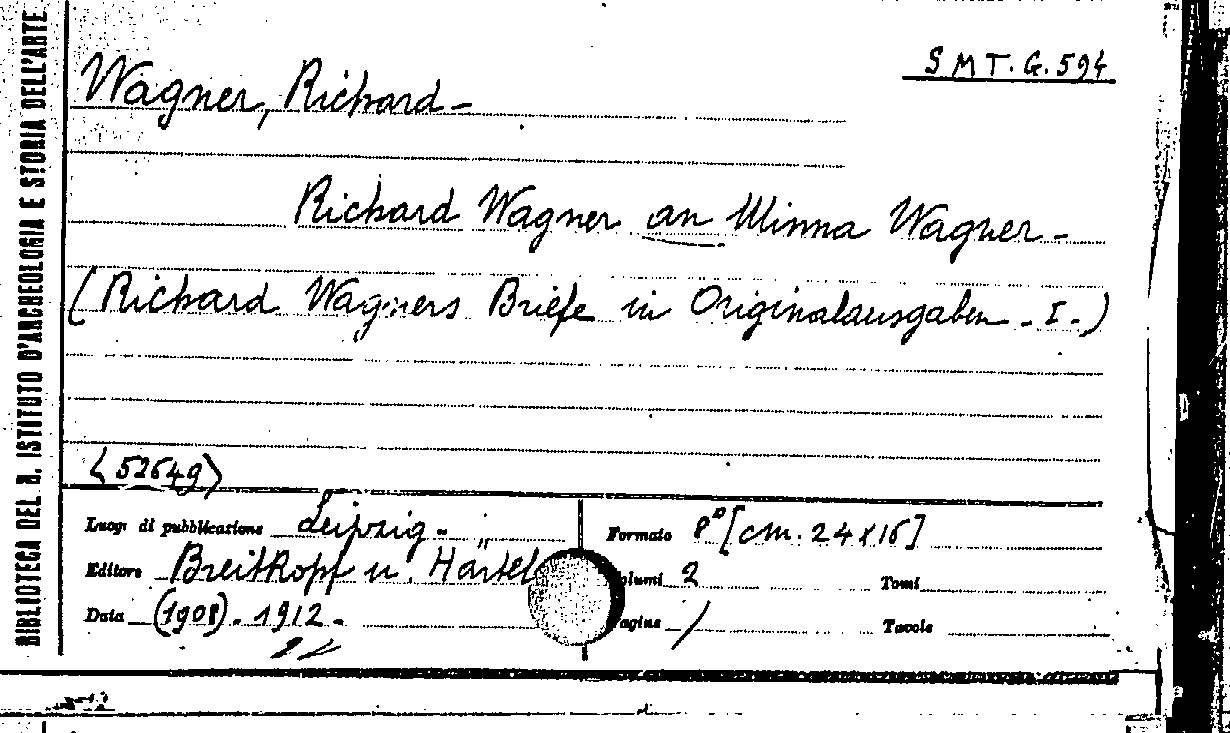 BIBLIOTECA DEL R. ISTITUTO D'ARCHEOLOGIA E STORIA DELL'ARTE
S M T. G. 594
Wagner, Richard -
Richard Wagner an Minna Wagner -
(Richard Wagners Briefe in Originalausgaben - I -)
<52649>
Luogo di pubblicazione Leipzig -
Formato 8° [cm. 24x16]
Editore Breitkopf u. Härtel
Volumi 2
Tomi
Data (1908) - 1912 -
Pagine /
Tavole